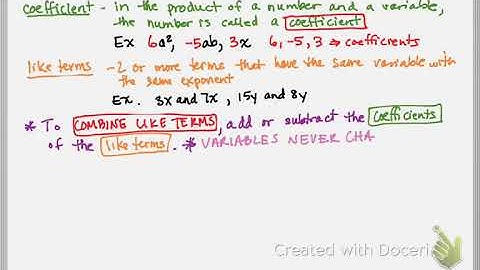 coefficient - in the product of a number and a variable,
the number is called a coefficient
Ex 6a², -5ab, 3x 6, -5, 3 ⇒ coefficients
like terms - 2 or more terms that have the same variable with
the same exponent
Ex. 3x and 7x , 15y and 8y
* To COMBINE LIKE TERMS, add or subtract the coefficients
of the like terms. * VARIABLES NEVER CHA
Created with Doceri